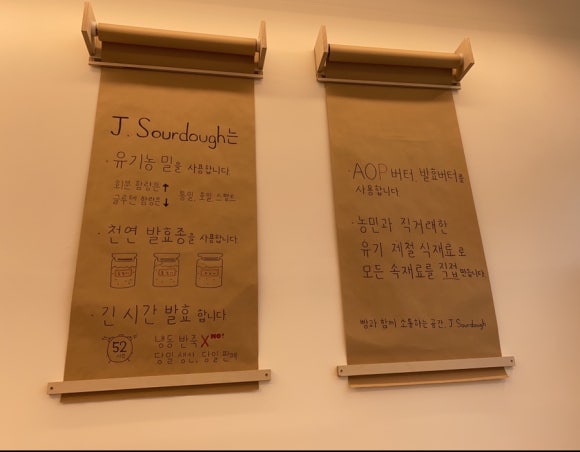 J. Sourdough는
· 유기농 밀을 사용합니다
회분 함량은 ↑
글루텐 함량은 ↓
통밀, 호밀, 스펠트
· 천연 발효종을 사용합니다
· 긴 시간 발효 합니다
52
시간
냉동 반죽 X NO!
당일 생산, 당일 판매
· AOP 버터, 발효버터를
사용합니다
· 농민과 직거래한
유기 제철 식재료로
모든 속재료를 직접 만듭니다
빵과 함께 소통하는 공간, J. Sourdough